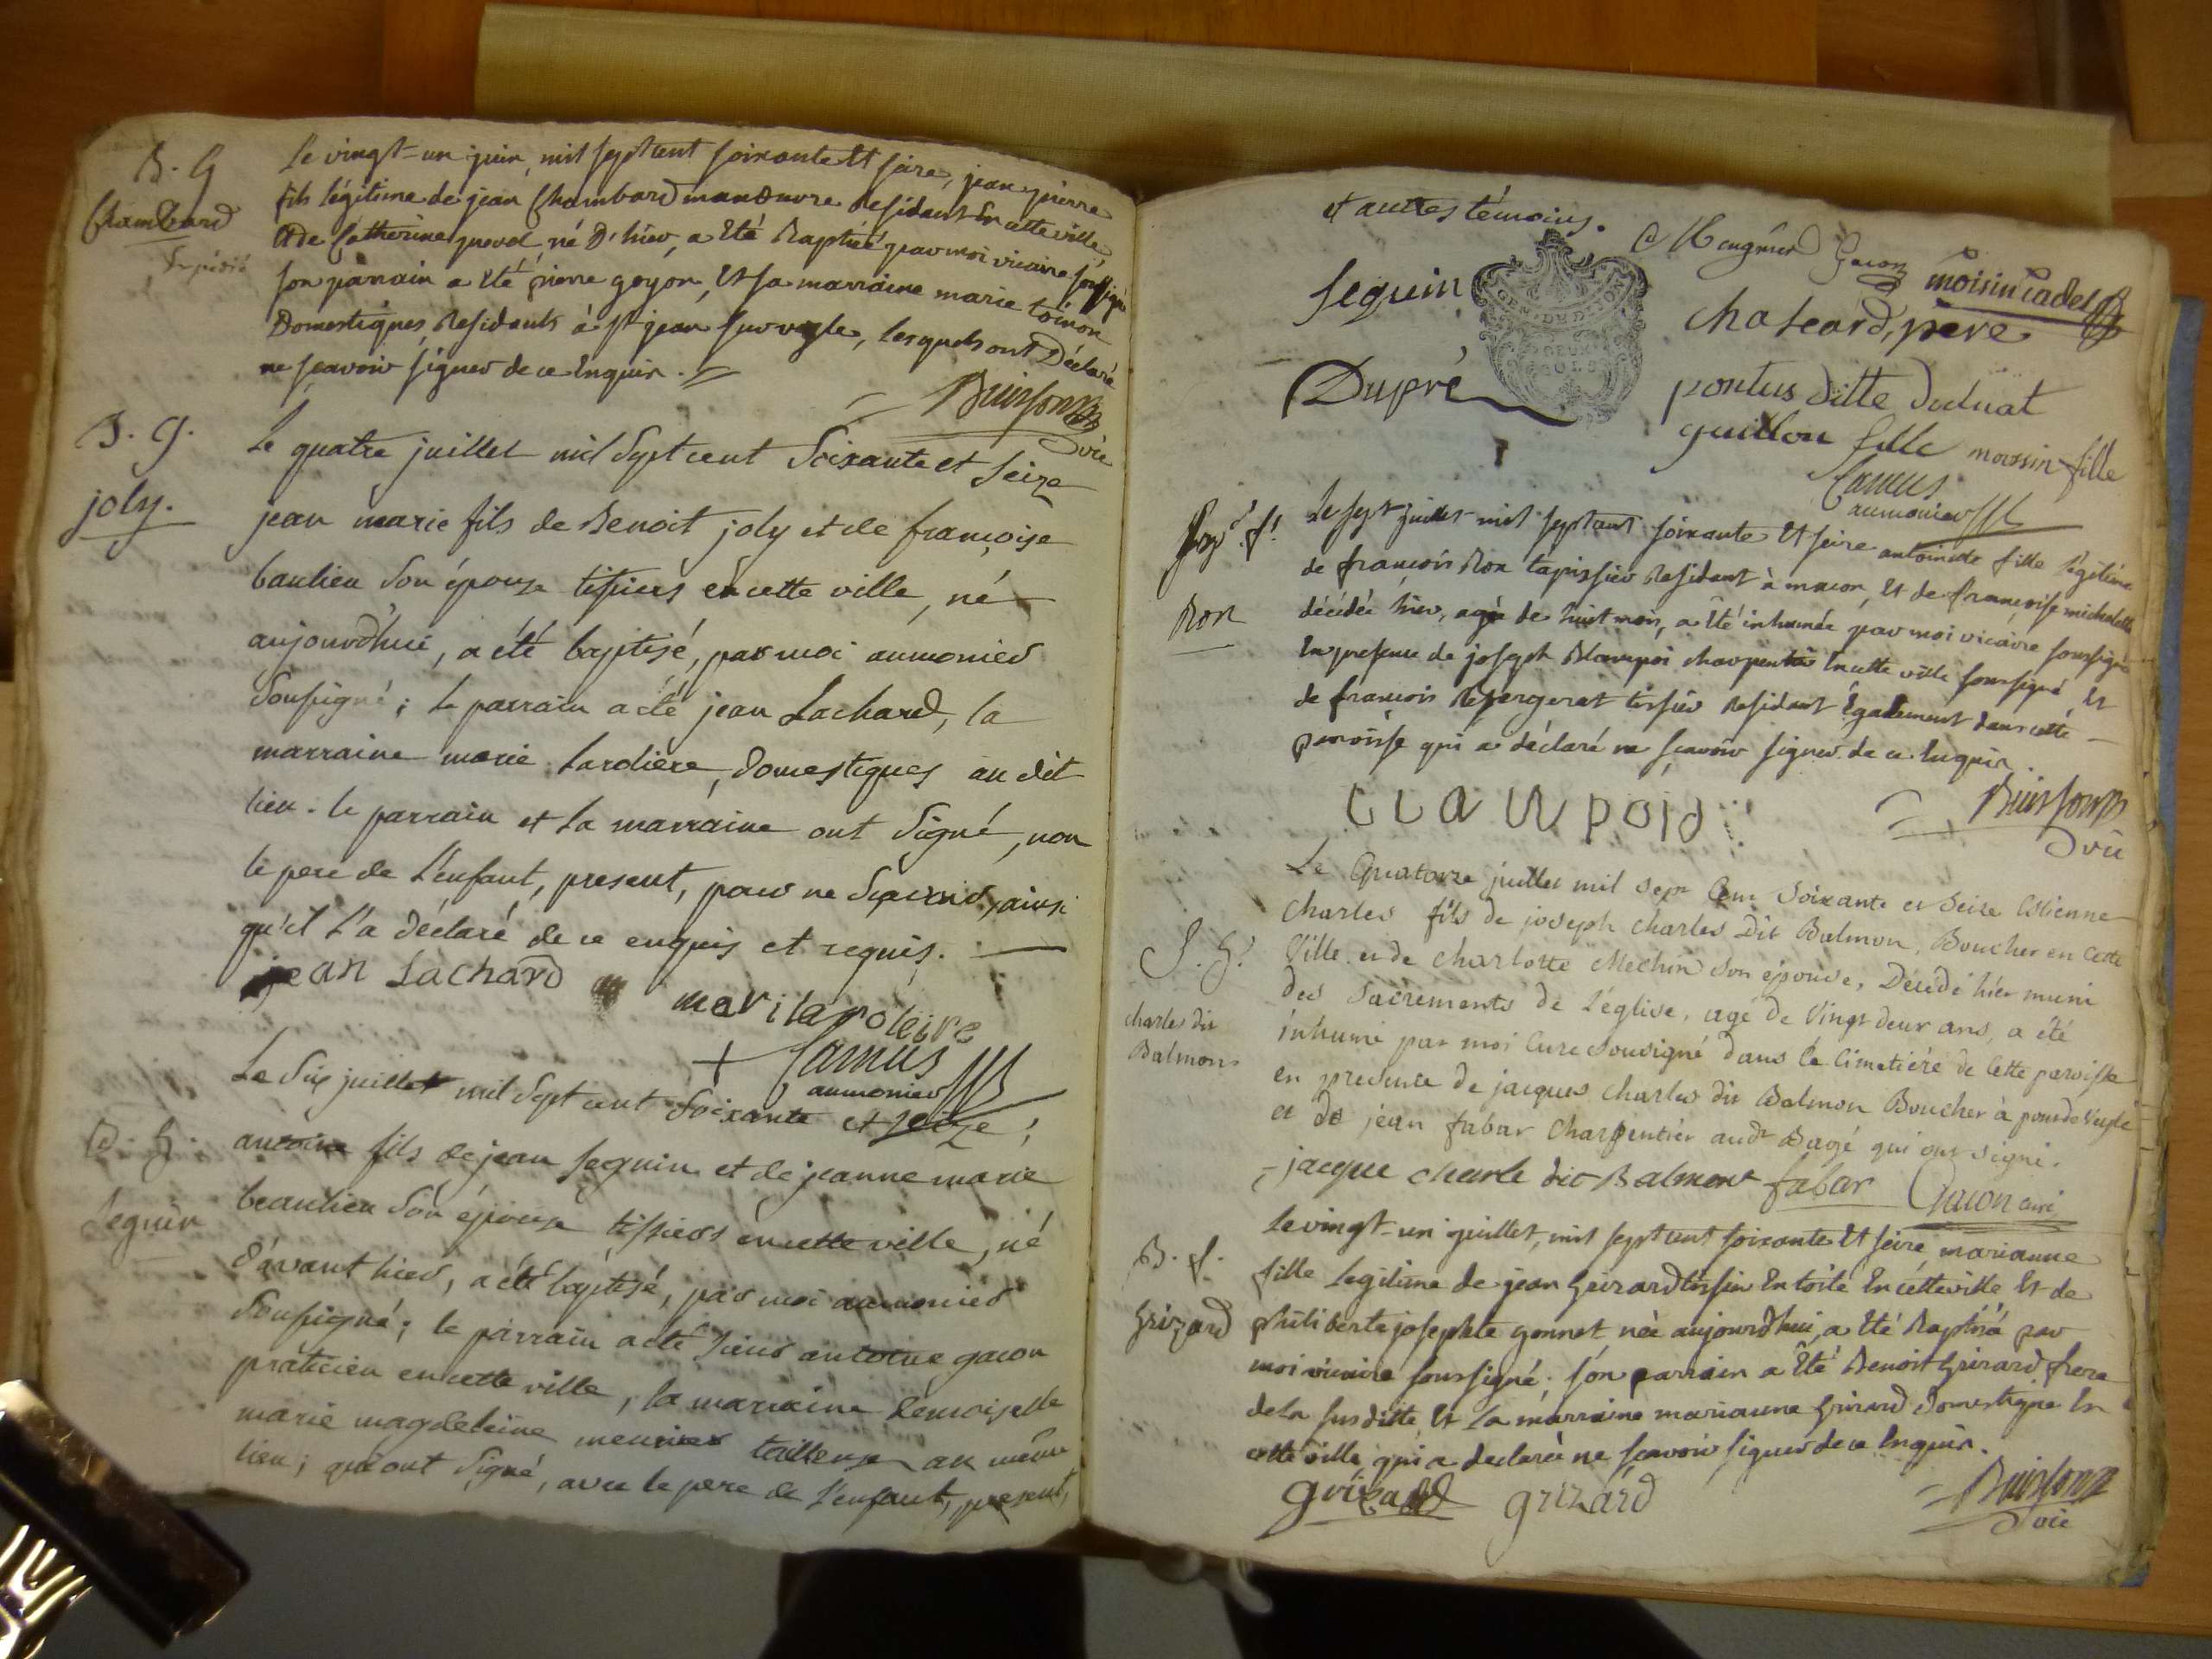 B. G
Chambard
Expedié
Le vingt-un juin, mil sept cent soixante Et seize, jean pierre
fils légitime de jean Chambard manœuvre Residant En cette ville,
Et de Catherine né D'hier, a Eté Baptisé par moi vicaire soussigné
son parrain a Eté pierre goyon, Et sa marraine marie toinon
Domestiques Residants à St jean sur veyle, lesquels ont Déclaré
ne sçavoir signer de ce Enquis.
Buisson
vic
B. G.
joly.
Le quatre juillet mil Sept cent Soixante et Seize
jean marie fils de Benoit joly et de françoise
baulieu Son épouse tissiers en cette ville, né
aujourd'hui, a été baptisé, par moi aumonier
Soussigné; le parrain a été jean Lachard, la
marraine marie Lardiere, Domestiques au dit
lieu. le parrain et la marraine ont Signé, non
le pere de l'enfant, present, pour ne Sçavoir, ainsi
qu'il l'a déclaré de ce enquis et requis.
jean Lachard
Camus
aumonier
B. G.
Seguin
Le Six juillet mil Sept cent Soixante et Seize;
antoine fils de jean Seguin et de jeanne marie
beaulieu Son épouse tissiers en cette ville, né
d'avant hier, a été baptisé, par moi aumonier
Soussigné; le parrain a été Sieur antoine gacon
praticien en cette ville, la marraine Demoiselle
marie magdeleine meunier tailleuse au même
lieu; qui ont Signé, avec le pere de l'enfant, present,
et autres témoins.
Gacon
moisin cadet
Seguin
GEN. DE DIJON
DEUX
SOLS
chatard, pere
Dupré
pontus ditte
guillon fille
moissin fille
Camus
aumonier
Ron
Le sept juillet mil sept cent soixante Et seize antoinette fille légitime
de francois Ron tapissier Residant à macon, Et de francoise
décédée hier, agée de huit mois, a Eté inhumée par moi vicaire soussigné
En presence de joseph Blampoi charpentier En cette ville soussigné, Et
de francois tissier Residant Egalement dans cette
paroisse qui a déclaré ne sçavoir signer de ce Enquis.
Buisson
vic
S. G.
charles dit
Balmon
Le Quatorze juillet mil sept Cent Soixante et Seize Estienne
Charles fils de joseph Charles Dit Balmon, Boucher en Cette
Ville et de Charlotte Mechin son épouse, Décédé hier muni
des Sacrements de L'église, agé de Vingt deux ans, a été
inhumé par moi Curé Sousigné dans le Cimetiére de Cette paroisse
en presence de jacques Charles dit Balmon Boucher à pondeveyle
et de jean fabar Charpentier audt Bagé qui ont signé.
jacque charle dit Balmont fabar Gacon curé
B. f.
Grizard
Le vingt-un juillet, mil sept cent soixante Et seize, marianne
fille legitime de jean Grizard tissier En toile En cette ville Et de
philiberte josephte gonnet née aujourd'hui, a Eté Baptisée par
moi vicaire soussigné; son parrain a Eté Benoit Grizard frere
de la susditte, Et la marraine marianne Grizard domestique En
cette ville, qui a declarée ne sçavoir signer de ce Enquis.
grizard grizard
Buisson
vic